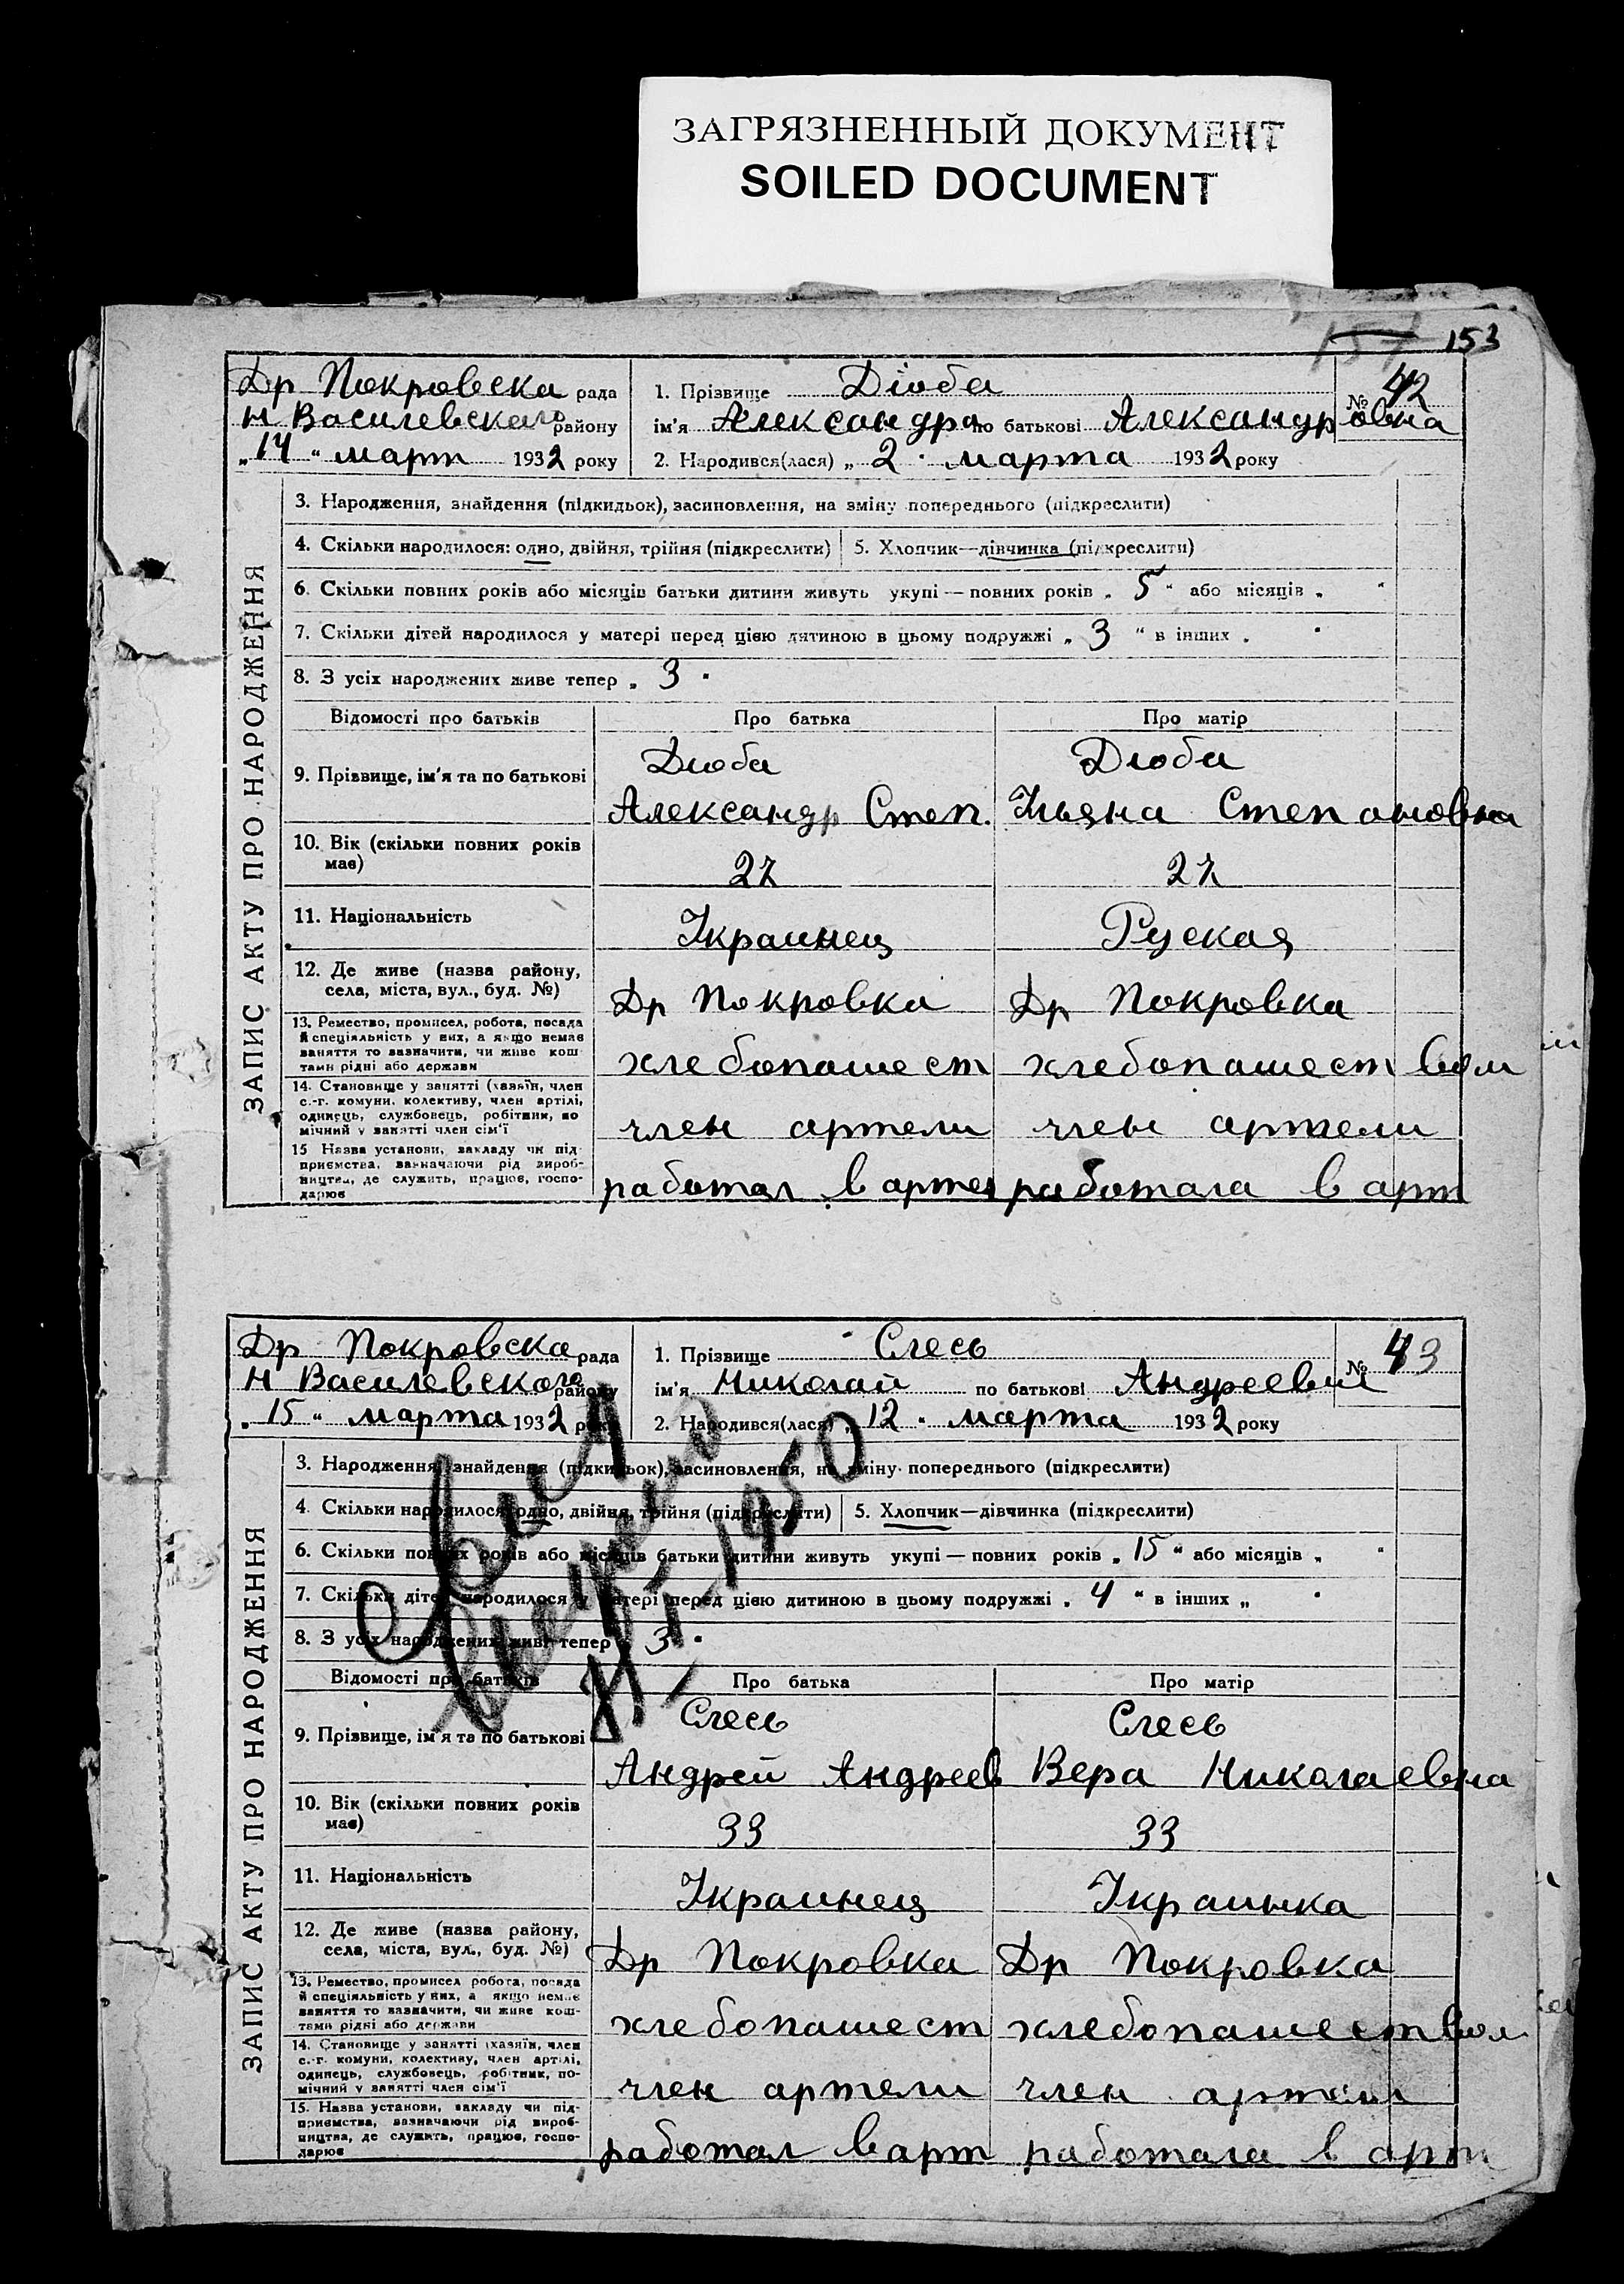 ЗАГРЯЗНЕННЫЙ ДОКУМЕНТ
SOILED DOCUMENT
153
Др Покровска рада
Н Василевского району
„14" март 1932 року
1. Прізвище Дюба
№ 42
ім'я Александра по батькові Александровна
2. Народився(лася) „2" марта 1932 року
ЗАПИС АКТУ ПРО НАРОДЖЕННЯ
3. Народження, знайдення (підкидьок), засиновлення, на зміну попереднього (підкреслити)
4. Скільки народилося: одно, двійня, трійня (підкреслити) 5. Хлопчик—дівчинка (підкреслити)
6. Скільки повних років або місяців батьки дитини живуть укупі — повних років „5" або місяців „ "
7. Скільки дітей народилося у матері перед цією дитиною в цьому подружжі „3" в інших „ "
8. З усіх народжених живе тепер „3"
Відомості про батьків Про батька Про матір
9. Прізвище, ім'я та по батькові
Дюба Дюба
Александр Степ. Ульяна Степановна
10. Вік (скільки повних років має)
27 27
11. Національність
Украинец Руская
12. Де живе (назва району, села, міста, вул., буд. №)
Др Покровка Др Покровка
13. Ремество, промисел, робота, посада й спеціяльність у них, а якщо немає заняття то зазначити, чи живе коштами рідні або держави
хлебопашест хлебопашеством
14. Становище у занятті (хазяїн, член с.-г. комуни, колективу, член артілі, одинець, службовець, робітник, помічний у занятті член сім'ї
член артели член артели
15 Назва установи, закладу чи підприємства, зазначаючи рід виробництва, де служить, працює, господарює
работал в артел работала в арт
Др Покровска рада
Н Василевского району
„15" марта 1932 року
1. Прізвище Слесь
№ 43
ім'я Николай по батькові Андреевич
2. Народився(лася) „12" марта 1932 року
ЗАПИС АКТУ ПРО НАРОДЖЕННЯ
3. Народження, знайдення (підкидьок), засиновлення, на зміну попереднього (підкреслити)
4. Скільки народилося: одно, двійня, трійня (підкреслити) 5. Хлопчик—дівчинка (підкреслити)
6. Скільки повних років або місяців батьки дитини живуть укупі — повних років „15" або місяців „ "
7. Скільки дітей народилося у матері перед цією дитиною в цьому подружжі „4" в інших „ "
8. З усіх народжених живе тепер „3"
1950
Відомості про батьків Про батька Про матір
9. Прізвище, ім'я та по батькові
Слесь Слесь
Андрей Андреев Вера Николаевна
10. Вік (скільки повних років має)
33 33
11. Національність
Украинец Украинка
12. Де живе (назва району, села, міста, вул., буд. №)
Др Покровка Др Покровка
13. Ремество, промисел робота, посада й спеціяльність у них, а якщо немає заняття то зазначити, чи живе коштами рідні або держави
хлебопашест хлебопашеством
14. Становище у занятті (хазяїн, член с.-г. комуни, колективу, член артілі, одинець, службовець, робітник, помічний у занятті член сім'ї
член артели член артели
15. Назва установи, закладу чи підприємства, зазначаючи рід виробництва, де служить, працює, господарює
работал в арт работала в арт